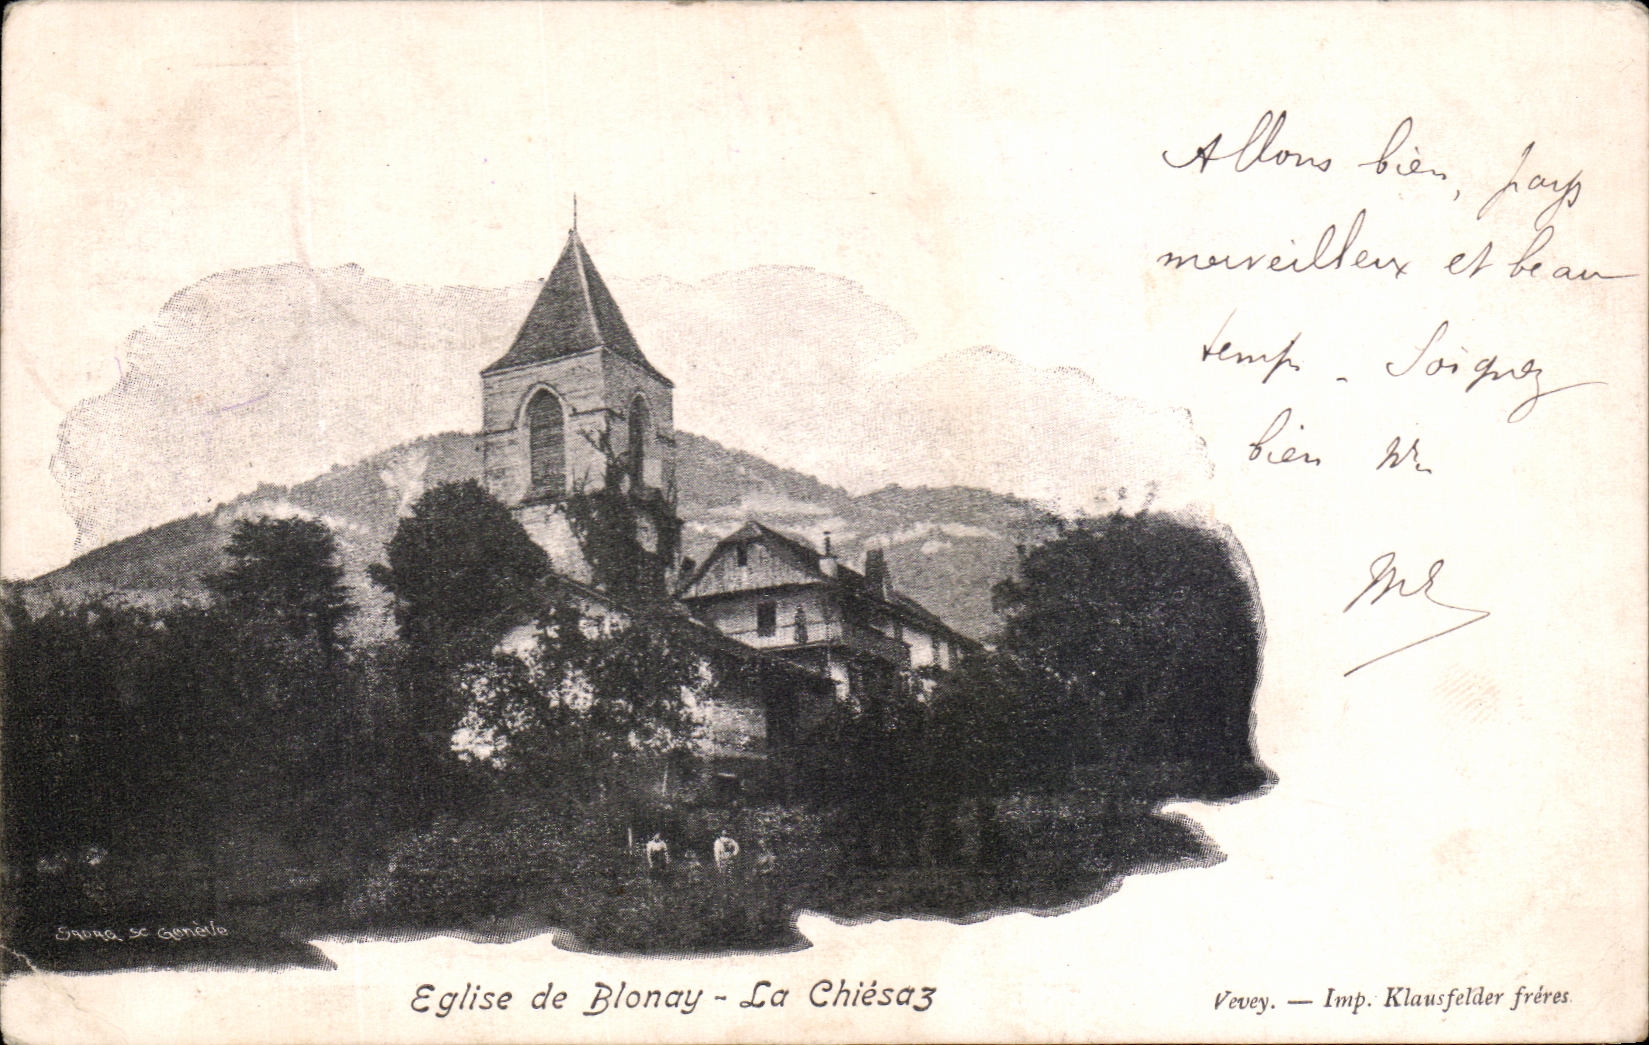 Allons bien, pays
merveilleux et beau
temps - Soignez
bien
SADAG SC GENÈVE
Eglise de Blonay - La Chiésaz
Vevey. — Imp. Klausfelder frères